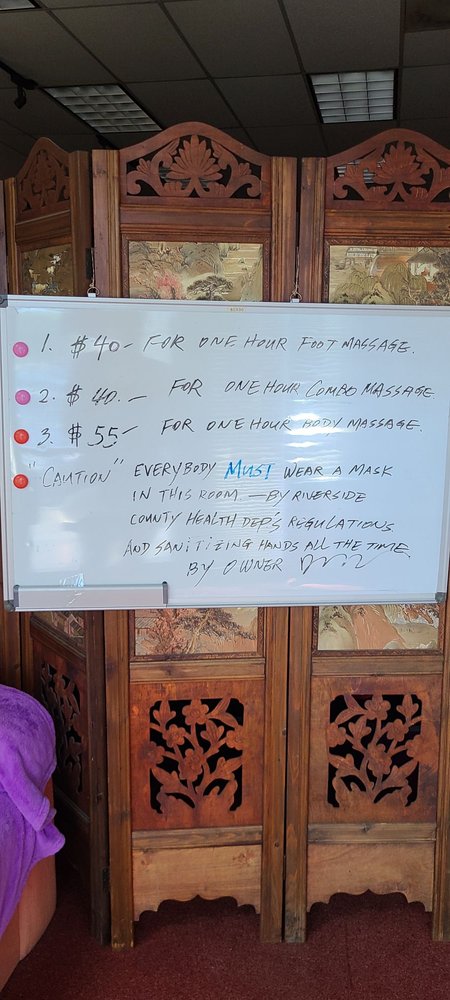 1. $40- FOR ONE HOUR FOOT MASSAGE.
2. $40.- FOR ONE HOUR COMBO MASSAGE
3. $55- FOR ONE HOUR BODY MASSAGE.
"CAUTION" EVERYBODY MUST WEAR A MASK
IN THIS ROOM. - BY RIVERSIDE
COUNTY HEALTH DEP'S REGULATIONS
AND SANITIZING HANDS ALL THE TIME.
BY OWNER